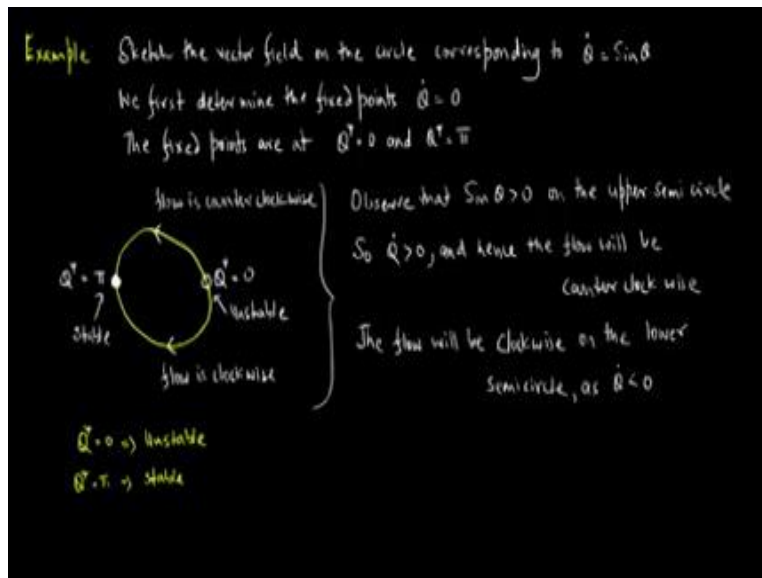 Example Sketch the vector field on the circle corresponding to θ̇ = Sin θ
We first determine the fixed points θ̇ = 0
The fixed points are at θ* = 0 and θ* = π
flow is counter clockwise
θ* = π
Stable
θ* = 0
Unstable
flow is clockwise
Observe that Sin θ > 0 on the upper semi circle
So θ̇ > 0, and hence the flow will be
counter clock wise
The flow will be clockwise on the lower
semicircle, as θ̇ < 0
θ* = 0 => Unstable
θ* = π => stable